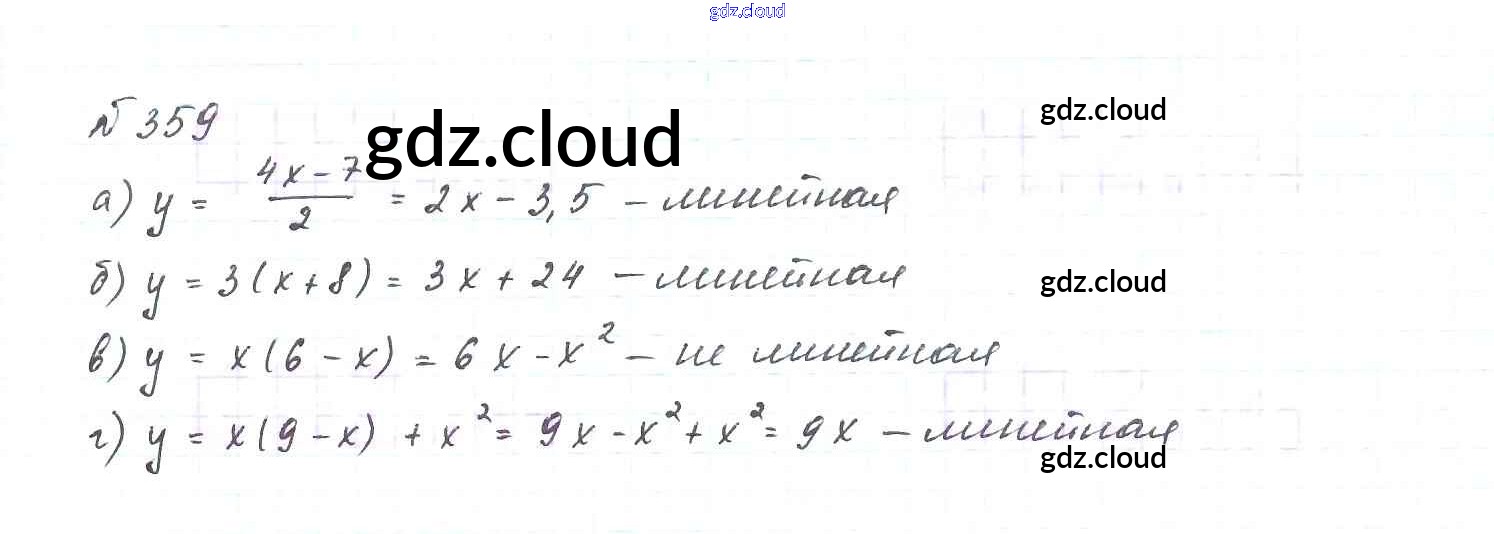 gdz.cloud
№ 359
gdz.cloud
gdz.cloud
а) y = (4x – 7)/2 = 2x – 3,5 – линейная
б) y = 3(x+8) = 3x + 24 – линейная
gdz.cloud
в) y = x(6 – x) = 6x – x² – не линейная
г) y = x(9 – x) + x² = 9x – x² + x² = 9x – линейная
gdz.cloud